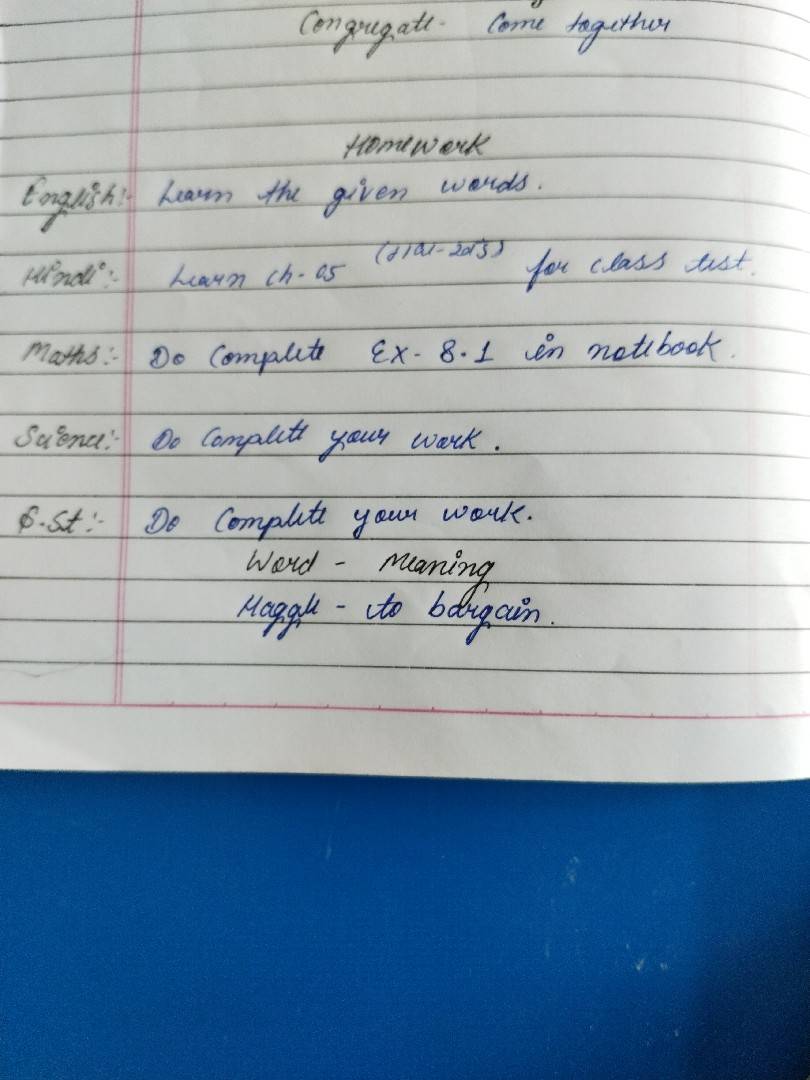 Congregate - Come together
Homework
English:- Learn the given words.
Hindi:- Learn ch-05 for class test.
Maths:- Do Complete Ex-8.1 in notebook.
Science:- Do Complete your work.
S.St:- Do Complete your work.
Word - Meaning
Haggle - to bargain.